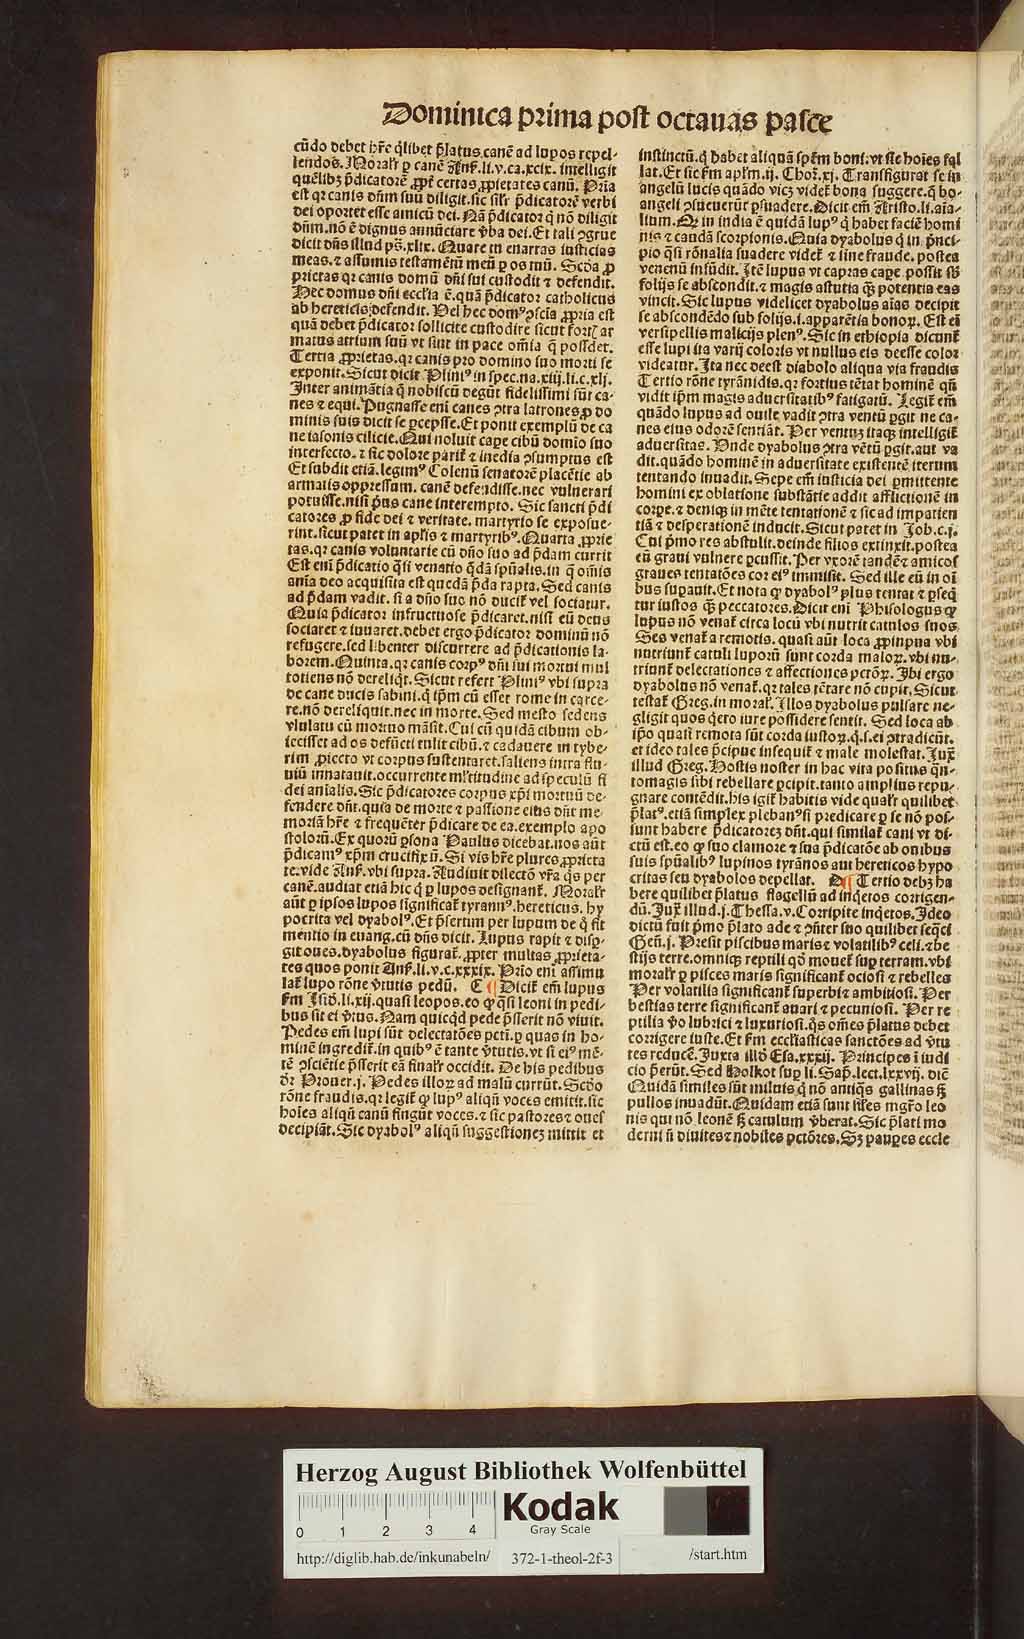 Dominica prima post octauas pasce
cūdo debet hr̄e q̄libet p̄latus canē ad lupos repel-
lendos. Moralr̄ ꝑ canē Ans. li. v. ca. xcix. intelligit
quēlibꝫ p̄dicatorē ꝓpt̄ certas ꝓpietates canū. Pria
est qꝛ canis dn̄m suū diligit. sic silr̄ p̄dicatorē verbi
dei oportet esse amicū dei. Nā p̄dicator q̄ nō diligit
dn̄m. nō ē dignus annūciare v̄ba dei. Et tali ꝯgrue
dicit dn̄s illud ps̄. xlix. Quare tu enarras iusticias
meas. ⁊ assumis testamētū meū ꝑ os tuū. Scd̄a ꝓ
prietas qꝛ canis domū dn̄i sui custodit ⁊ defendit.
Hec domus dn̄i eccl̄ia ē. quā p̄dicator catholicus
ab hereticis defendit. Vel hec domꝰ ꝯscia ꝓpria est
quā debet p̄dicator sollicite custodire sicut fortꝯ ar
matus atrium suū vt sint in pace om̄ia q̄ possdet.
Tertia ꝓprietas. qꝛ canis pro domino suo morti se
exponit. Sicut dicit Pliniꝰ in spec. na. xiij. li. c. xlj.
Inter animātia q̄ nobiscū degūt fidelissimi sūt ca-
nes ⁊ equi. Pugnasse eni canes ꝯtra latrones ꝓ do
minis suis dicit se ꝑcepisse. Et ponit exemplū de ca
ne iasonis cilicie. Qui noluit cape cibū domīo suo
interfecto. ⁊ sic dolore parit̄ ⁊ inedia ꝯsumptus est
Et subdit etiā. legimꝰ Colenū senatorē placētie ab
armatis oppressum. canē defendisse. nec vulnerari
potuisse. nisi p̄us cane interempto. Sic sancti p̄di
catores ꝓ fide dei ⁊ veritate. martyrio se exposue-
rint. sicut patet in apl̄is ⁊ martyribꝰ. Quarta ꝓprie
tas. qꝛ canis voluntarie cū dn̄o suo ad p̄dam currit
Est eni p̄dicatio q̄si venatio q̄dā spūalis. in q̄ om̄is
anīa deo acquisita est quedā p̄da rapta. Sed canis
ad p̄dam vadit. si a dn̄o suo nō ducit̄ vel sociatur.
Quia p̄dicator infructuose p̄dicaret. nisi eū deus
sociaret ⁊ iuuaret. debet ergo p̄dicator dominū nō
refugere. sed libenter discurrere ad p̄dicationis la-
borem. Quinta. qꝛ canis corpꝰ dn̄i sui mortui mul
totiens nō dereliqt̄. Sicut refert Pliniꝰ vbi supra
de cane ducis sabini. q̄ ip̄m cū esset rome in carce-
re. nō dereliquit. nec in morte. Sed mesto sedens
vlulatu cū mortuo māsit. Cui cū quidā cibum ob-
iecisset ad os defūcti tulit cibū. ⁊ cadauere in tybe-
rim ꝓiecto vt corpus sustentaret. saliens intra flu-
uiū innatauit. occurrente ml̄titudine ad speculū fi
dei anialis. Sic p̄dicatores corpus xp̄i mortuū de-
fendere dn̄t. quia de morte ⁊ passione eius dn̄t me-
moriā hr̄e ⁊ frequēter p̄dicare de ea. exemplo apo
stolorū. Ex quorū ꝑsona Paulus dicebat. nos aūt
p̄dicamꝰ xp̄m crucifixū. Si vis hr̄e plures ꝓprieta
te. vide Ans. vbi supra. Audiuit dilectō vr̄a q̄s per
canē. audiat etiā hic q̄ ꝑ lupos designant̄. Moralr̄
aūt ꝑ ipsos lupos significat̄ tyrannꝰ. hereticus. hy
pocrita vel dyabolꝰ. Et p̄sertim per lupum de q̄ fit
mentio in euang. cū dn̄s dicit. Lupus rapit ⁊ disp̄-
git oues. dyabolus figurat̄. ꝓpter multas ꝓprieta-
tes quos ponit Ans. li. v. c. xxxix. Prīo eni assimi
lat̄ lupo rōne v̄tutis pedū. C ¶ Dicit̄ em̄ lupus
s̄m Isid̄. li. xij. quasi leopos. eo ꝙ q̄si leoni in pedi-
bus sit ei v̄tus. Nam quicqd̄ pede p̄sserit nō viuit.
Pedes em̄ lupi sūt delectatōes pct̄i. ꝑ quas in ho-
minē ingredit̄. in quibꝰ ē tante v̄tutis. vt si eiꝰ mē-
tē ꝯsciētie p̄sserit eā finalr̄ occidit. De his pedibus
dr̄ Prouer. j. Pedes illoꝝ ad malū currūt. Scd̄o
rōne fraudis. qꝛ legit̄ ꝙ lupꝰ aliqn̄ voces emittit. sic
hoīes aliqn̄ canū fingūt voces. ⁊ sic pastores ⁊ oues
decipiāt. Sic dyabolꝰ aliqn̄ suggestionēs mittit et
instinctū. q̄ habet aliquā spēm boni. vt sic hoīes fal
lat. Et sic s̄m apl̄m. ij. Choꝝ. xj. Transfigurat se in
angelū lucis quādo vicꝫ videt̄ bona suggere. q̄ bo-
angeli ꝯsueuerūt ꝑsuadere. Dicit em̄ Aristo. li. aīa-
lium. Q in india ē quidā lupꝰ q̄ habet faciē homi
nis ⁊ caudā scorpionis. Quia dyabolus q̄ in p̄nci-
pio q̄si rōnalia suadere videt̄ ⁊ sine fraude. postea
venenū infūdit. Itē lupus vt capras cape possit sb̄
folijs se abscondit. ⁊ magis astutia q̄ꝫ potentia eas
vincit. Sic lupus videlicet dyabolus aīas decipit
se abscondēdo sub folijs. i. apparētis bonoꝝ. Est ei
versipellis malicijs plenꝰ. Sic in ethiopia dicunt̄
esse lupi ita varij coloris vt nullus eis deesse color
videatur. Ita nec deest diabolo aliqua via fraudis
Tertio rōne tyrānidis. qꝛ fortius tētat hominē qn̄
vidit ip̄m magis aduersitatibꝰ fatigatū. Legit̄ em̄
quādo lupus ad ouile vadit ꝯtra ventū ꝑgit ne ca-
nes eius odorē sentiāt. Per ventuꝫ itaqꝫ intelligit̄
aduersitas. Vnde dyabolus ꝯtra vētū ꝑgit. aut va
dit. quādo hominē in aduersitate existentē iterum
tentando inuadit. Sepe em̄ iusticia dei ꝑmittente
homini ex oblatione substātie addit afflictionē in
corpe. ⁊ deniqꝫ in mēte tentationē ⁊ sic ad impatien
tiā ⁊ desperationē inducit. Sicut patet in Job. c. j.
Cui p̄mo res abstulit. deinde filios extinxit. postea
eū graui vulnere ꝑcussit. Per vxorē tandē ⁊ amicos
graues tentatōes cor eiꝰ immisit. Sed ille eū in oī
bus supauit. Et nota ꝙ dyabolꝰ plus tentat ⁊ ꝑseq̄
tur iustos q̄ꝫ peccatores. Dicit eni Phisologus ꝙ
lupus nō venat̄ circa locū vbi nutrit catulos suos
Ses venat̄ a remotis. quasi aūt loca ꝓpinqua vbi
nutriunt̄ catuli luporū sunt corda maloꝝ. vbi nu-
triunt̄ delectationes ⁊ affectiones pctōꝝ. Ibi ergo
dyabolus nō venat̄. qꝛ tales tētare nō cupit. Sicut
testat̄ Greg. in moral̄. Illos dyabolus pulsare ne-
gligit quos q̄eto iure possidere sentit. Sed loca ab
ip̄o quasi remota sūt corda iustoꝝ. q̄. s. ei ꝯtradicūt.
et ideo tales p̄cipue insequit̄ ⁊ male molestat. Iux̄
illud Greg. Hostis noster in hac vita positus q̄n-
tomagis sibi rebellare ꝑcipit. tanto amplius repu-
gnare contēdit. his igit̄ habitis vide qualr̄ quilibet
p̄latꝰ. etiā simplex plebanꝰ si predicare ꝑ se nō pos-
sunt habere p̄dicatorēꝫ dn̄t. qui similat̄ cani vt di-
ctū est. eo ꝙ suo clamore ⁊ sua p̄dicatōe ab onibus
suis spūalibꝰ lupinos tyrānos aut hereticos hypo
critas seu dyabolos depellat. D ¶ Tertio debꝫ ha
bere quilibet p̄latus flagellū ad inq̄etos corrigen-
dū. Jux̄ illud. j. Thessa. v. Corripite inq̄etos. Ideo
dictū fuit p̄mo p̄lato ade ⁊ ꝯn̄ter suo quilibet seq̄ci
Gen̄. j. Presit piscibus maris ⁊ volatilibꝰ celi. ⁊ be
stijs terre. omniqꝫ reptili qd̄ mouet̄ sup terram. vbi
moralr̄ ꝑ pisces maris significant̄ ociosi ⁊ rebelles
Per volatilia significant̄ superbi ⁊ ambitiosi. Per
bestias terre significant̄ auari ⁊ pecuniosi. Per re
ptilia v̄o lubrici ⁊ luxuriosi. q̄s om̄es p̄latus debet
corrigere iuste. Et s̄m eccl̄iasticas sanctōes ad v̄tu
tes reducē. Juxta illd̄ Esa. xxxij. Principes ī iudi
cio p̄erūt. Sed Holkot sup li. Sap̄. lect. lxxvij. diē
Quidā similes sūt miluis q̄ nō antiq̄s gallinas sꝫ
pullos inuadūt. Quidam etiā sunt siles mgr̄o leo
nis qui nō leonē sꝫ catulum v̄berat. Sic p̄lati mo
derni n̄ diuites ⁊ nobiles pctōres. Sꝫ pauꝑes eccle
Herzog August Bibliothek Wolfenbüttel
Kodak
Gray Scale
0 1 2 3 4
http://diglib.hab.de/inkunabeln/ 372-1-theol-2f-3 /start.htm